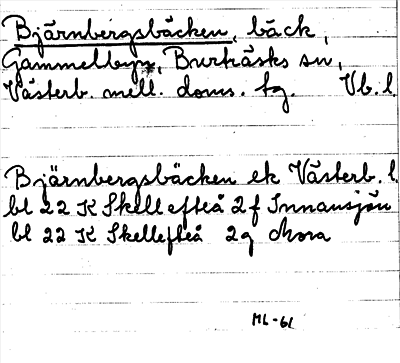 Björnbergsbäcken, bäck,
Gammelbyn, Burträsks sn,
Västerb. mell. doms. tg. Vb. l.
Björnbergsbäcken ek Västerb. l.
bl 22 K Skellefteå 2 f Innansjön
bl 22 K Skellefteå 2 g Mora
ML-61